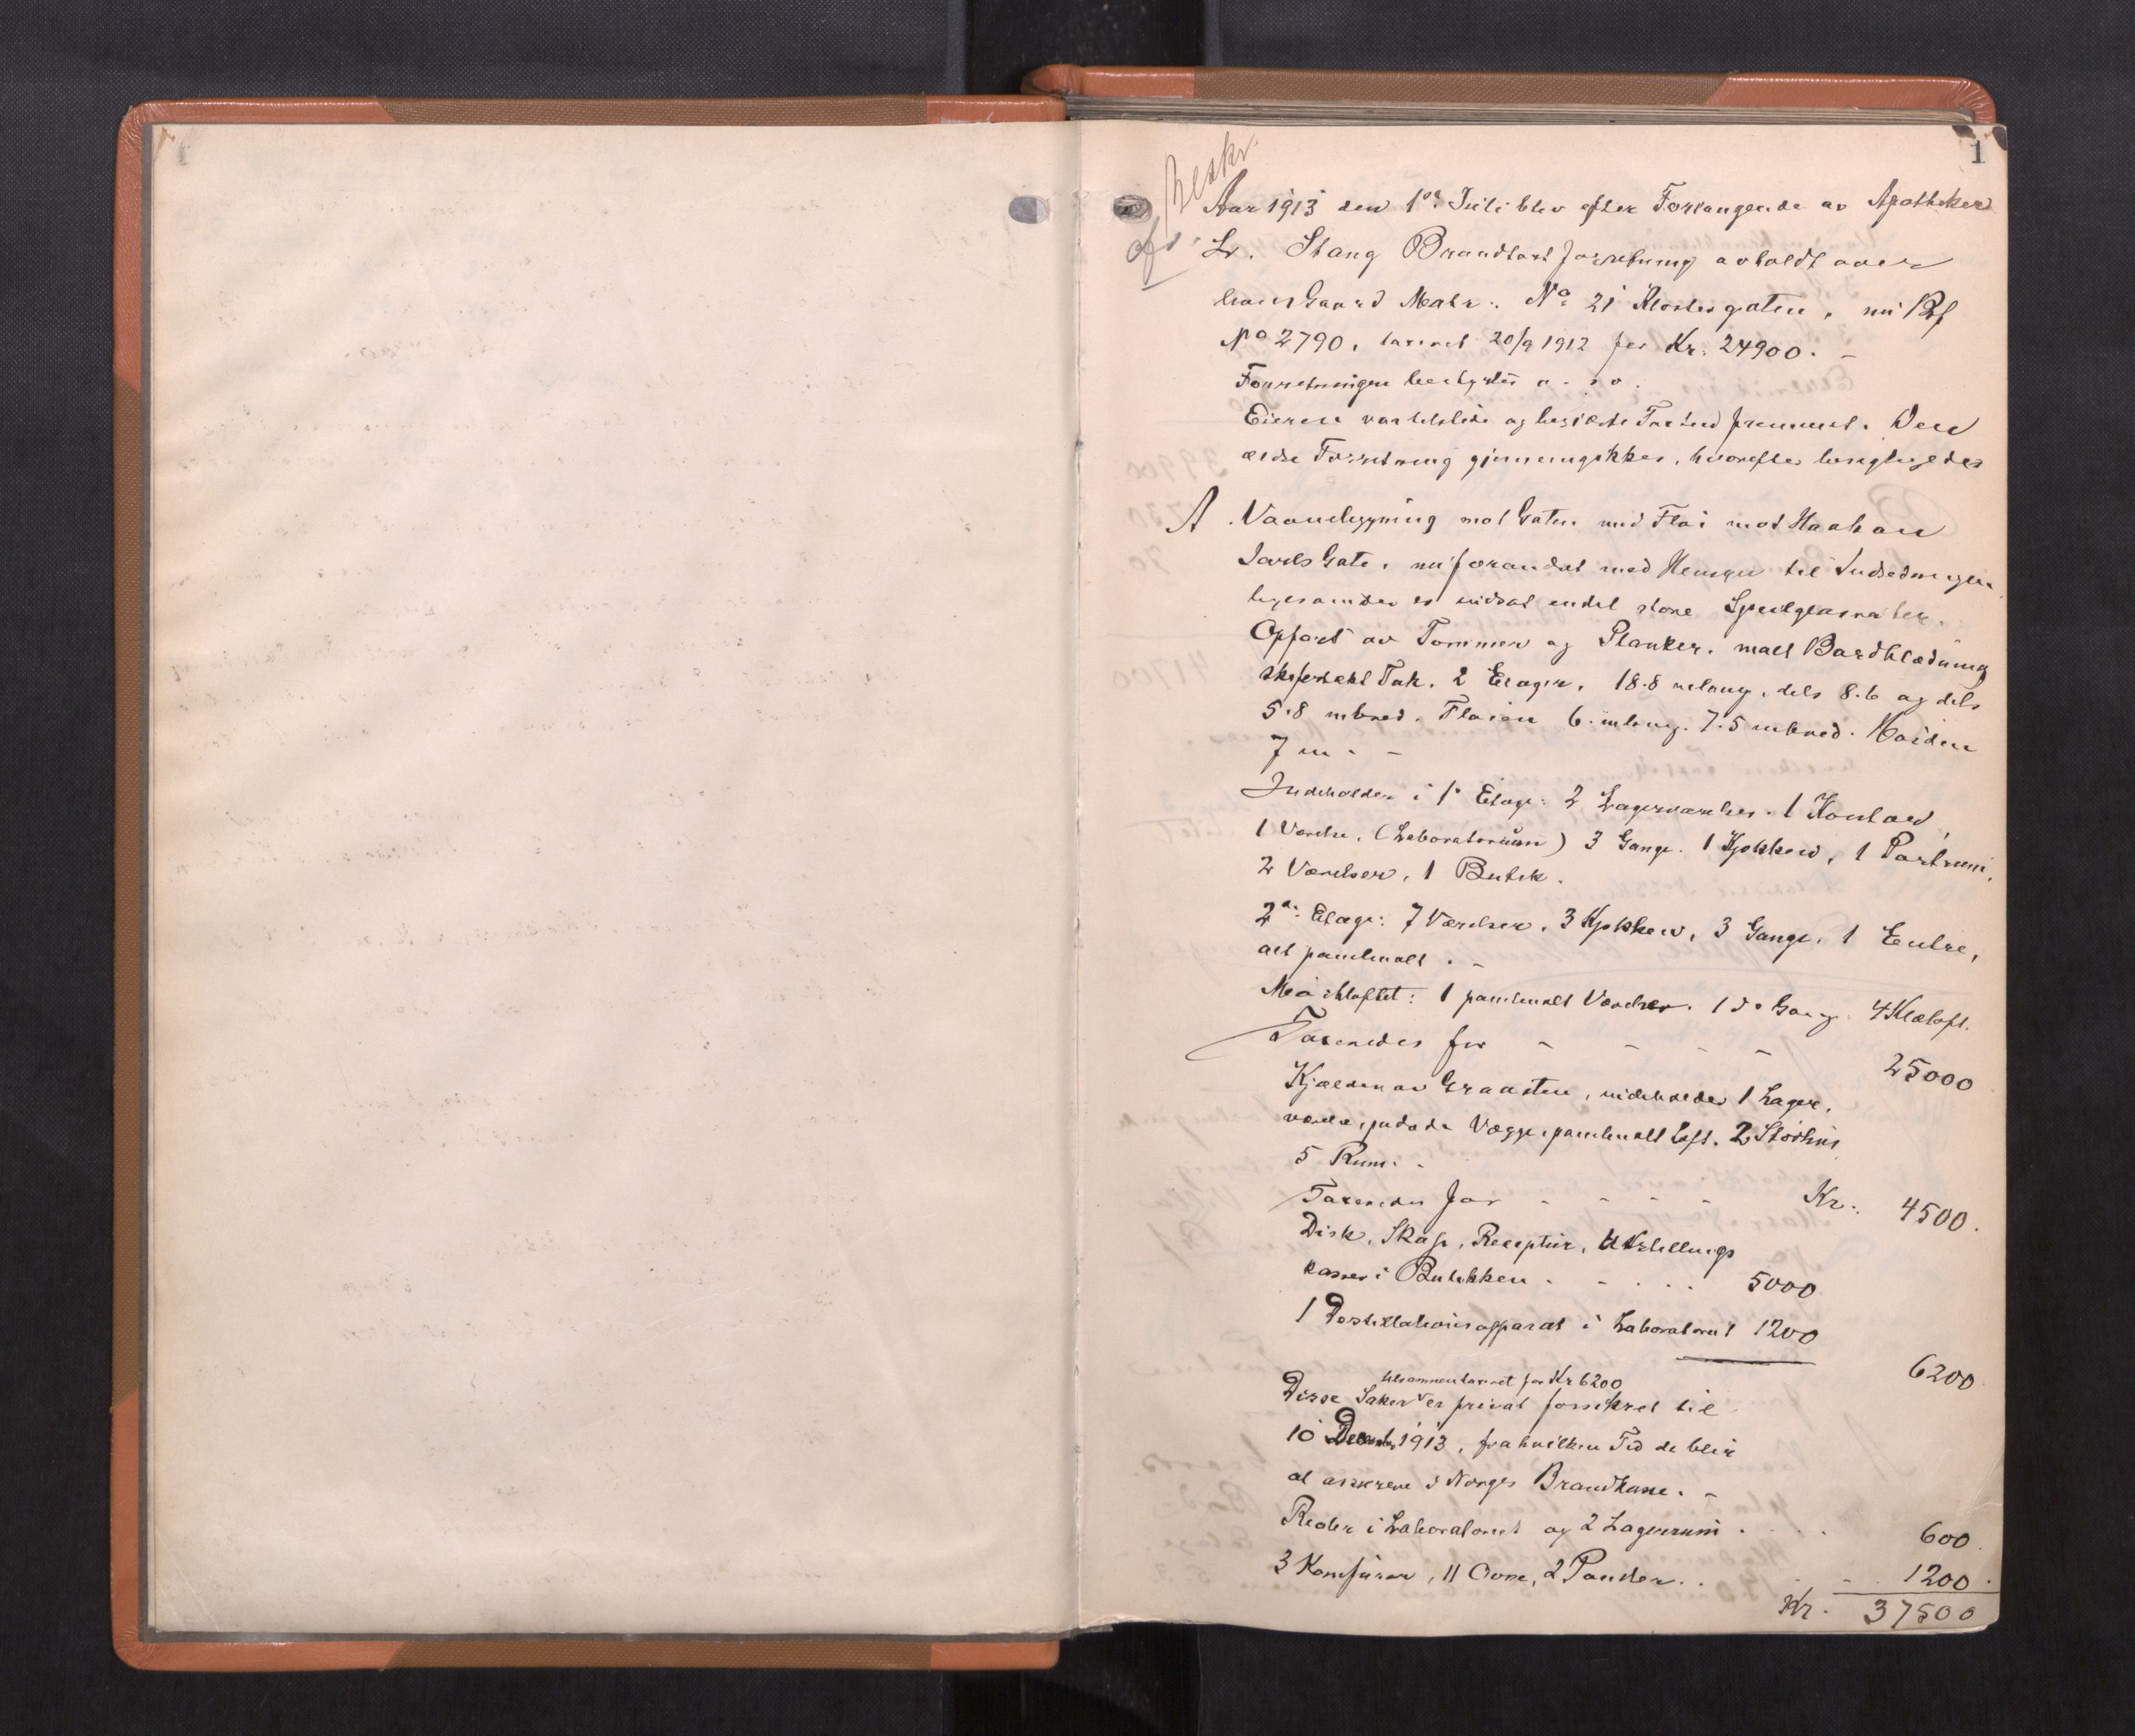 1
Beskr.
Aar 1913 den 1ste Juli blev efter Forlangende av Apotheker
Lr. Stang Brandtaxtforretning avholdt over
hans Gaard Matr: No 21 Klostergaten, nu Bf
No 2790, taxeret 20/9 1912 for Kr. 24900. -
Forretningen bestyrtes o. s. v.
Eieren var tilstede og begjærte Taxten fremmet. Den
ældre Forretning gjennemgikkes, hvorefter besigtigedes
A. Vaanebygning mot Gaten med Fløi mot Haakon
Jarls Gate, nu forandret med Hensyn til Indredningen
ligesom der er indsat endel store Speilglasruter.
Opført av Tømmer og Planker, malt Bordklædning
skifertækt Tak, 2 Etager, 18.8 m lang, dels 8.6 og dels
5.8 m bred. Fløien 6. m lang. 7.5 m bred. Høiden
7 m. -
Indeholder i 1' Etage: 2 Lagerværelser. 1 Kontor,
1 Værelse, (Laboratorium) 3 Gange. 1 Kjøkken, 1 Portrum,
2 Værelser, 1 Butik.
2den Etage: 7 Værelser, 3 Kjøkken, 3 Gange, 1 Entre,
alt panelmalt. -
Mørkloftet: 1 panelmalt Værelse. 1 do Gang. 4 Klæloft.
Taxeredes for - - - - 25000
Kjælder av Graasten, indeholder 1 Lager-
værelse, pudsede Vægge, panelmalt Loft. 2
5 Rum. -
Taxeredes for - - - - Kr. 4500.
Disk, Skape, Receptur, Utstillings
kasser i Butikken - - . . . 5000
1 Destillationsapparat i Laboratoriet 1200
6200
tilsammen taxeret for Kr 6200
Disse Saker er privat forsikret til
10 December 1913, fra hvilken Tid de blir
at assurere i Norges Brandkasse. -
Reoler i Laboratoriet og 2 Lagerrum . . . . 600.
3 Komfurer, 11 Ovne, 2 Pander. . . - . 1200.
Kr. 37500